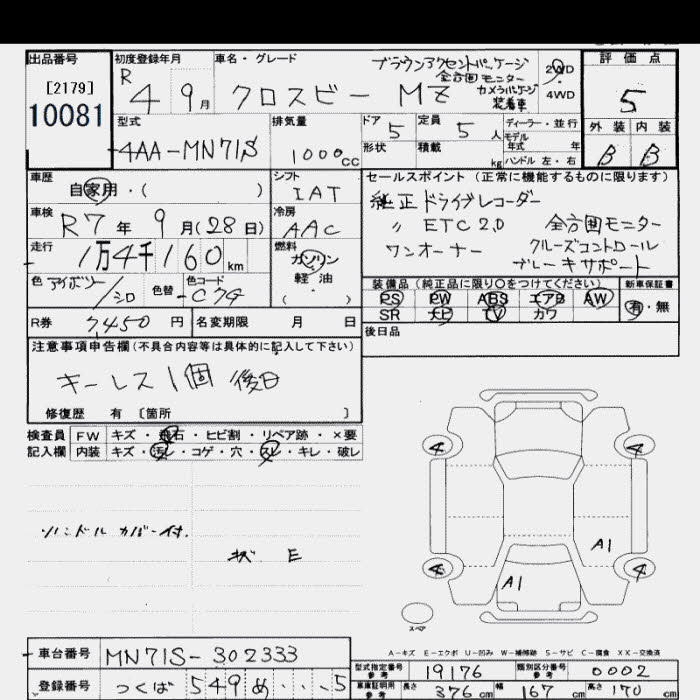 出品番号 初度登録年月 車名・グレード ブラウンアクセントパッケージ 2WD 評価点
[2179] R 全方囲モニター
10081 4 9月 クロスビー MZ カメラパッケージ 4WD 5
装着車
型式 排気量 ドア 5 定員 5人 ディーラー・並行 外装 内装
4AA-MN71S 1000cc 形状 積載 kg モデル 年式 年 ハンドル 左・右 B B
車歴 自家用・( ) シフト IAT セールスポイント(正常に機能するものに限ります)
車検 R7年 9月(28日) 冷房 AAC 純正ドライブレコーダー
〃 ETC2.0 全方囲モニター
走行 1万4千160km 燃料 ガソリン ワンオーナー クルーズコントロール
軽油 ブレーキサポート
色 アイボリー/シロ 色替 色コード C7G ( ) 装備品(純正品に限り○をつけてください) 新車保証書
PS PW ABS エアB AW 有・無
R券 7450円 名変期限 月 日 SR ナビ TV カワ
後日品
注意事項申告欄(不具合内容等は具体的に記入して下さい)
キーレス1個 後日
修復歴 有 〔箇所 〕
検査員 FW キズ・飛石・ヒビ割・リペア跡・×要
記入欄 内装 キズ・汚レ・コゲ・穴・スレ・キレ・破レ
4 4
ハンドルカバー付.
キズ E
A1
4 4
A1
スペア
A-キズ E-エクボ U-凹み W-補修跡 S-サビ C-腐食 XX-交換済
車台番号 MN71S-302333 型式指定番号 参考 19176 類別区分番号 参考 0002
登録番号 つくば 549 め ・・・5 車庫証明用 参考 長さ 376cm 幅 167cm 高さ 170cm